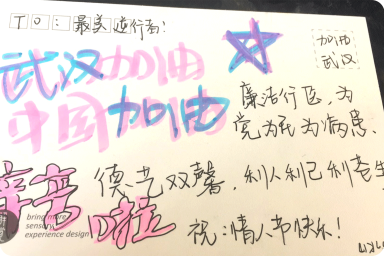 TO：最美逆行者！
加油
武汉
武汉加油
中国加油
加油
廉洁行医，为
党为民为病患、
德艺双馨，利人利己利苍生
辛苦
啦
祝：情人节快乐！
bring more
sensory
experience design